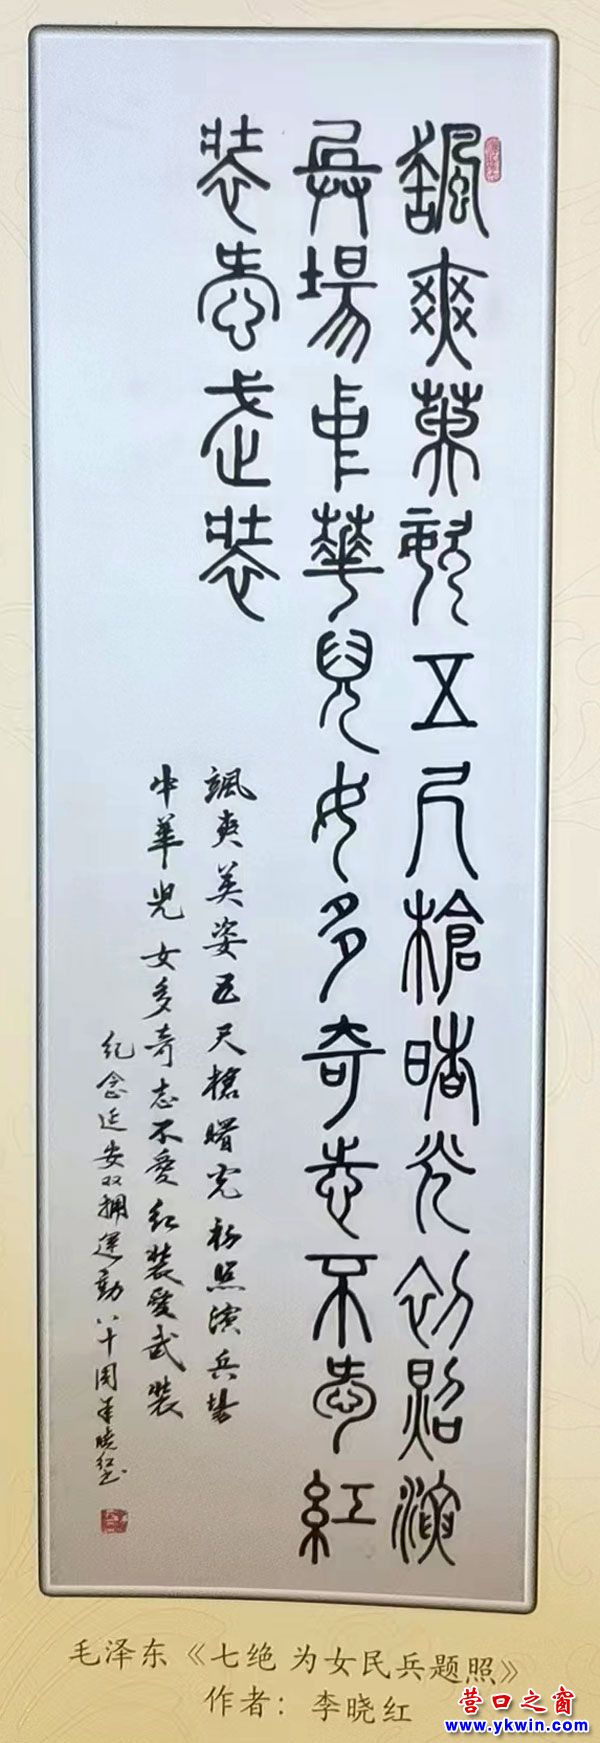 颯爽英姿五尺槍曙光初照演
兵場中華兒女多奇志不愛紅
裝愛武裝
颯爽英姿五尺槍曙光初照演兵場
中華兒女多奇志不愛紅裝愛武裝
纪念延安双拥運動八十周年曉红书
毛泽东《七绝 为女民兵题照》
作者：李晓红
营口之窗
www.ykwin.com